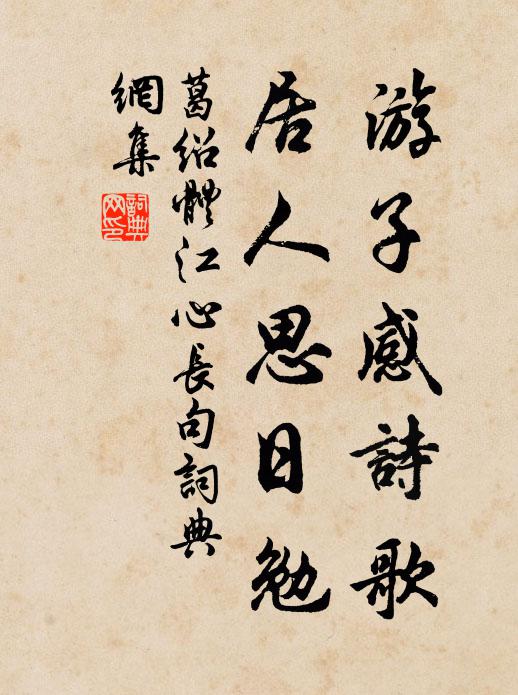 游子感詩歌
居人思日勉
葛紹體江心長句詞典
網集
詞典網印